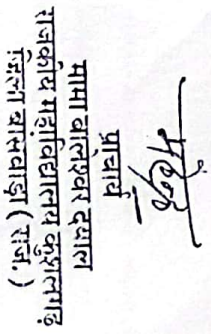 प्राचार्य
मामा बालेश्वर दयाल
राजकीय महाविद्यालय कुशलगढ़
जिला बांसवाड़ा ( राज. )